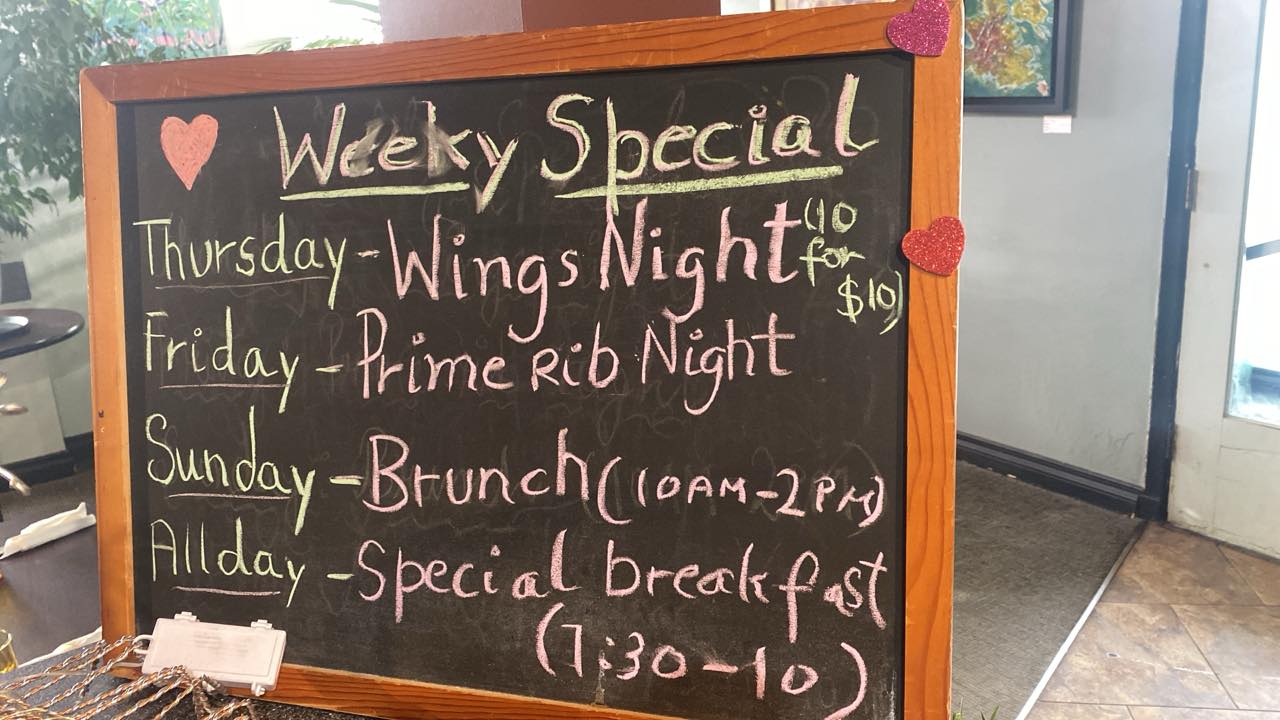 Weeky Special
Thursday - Wings Night (10 for $10)
Friday - Prime Rib Night
Sunday - Brunch (10AM-2PM)
Allday - Special breakfast
(7:30-10)